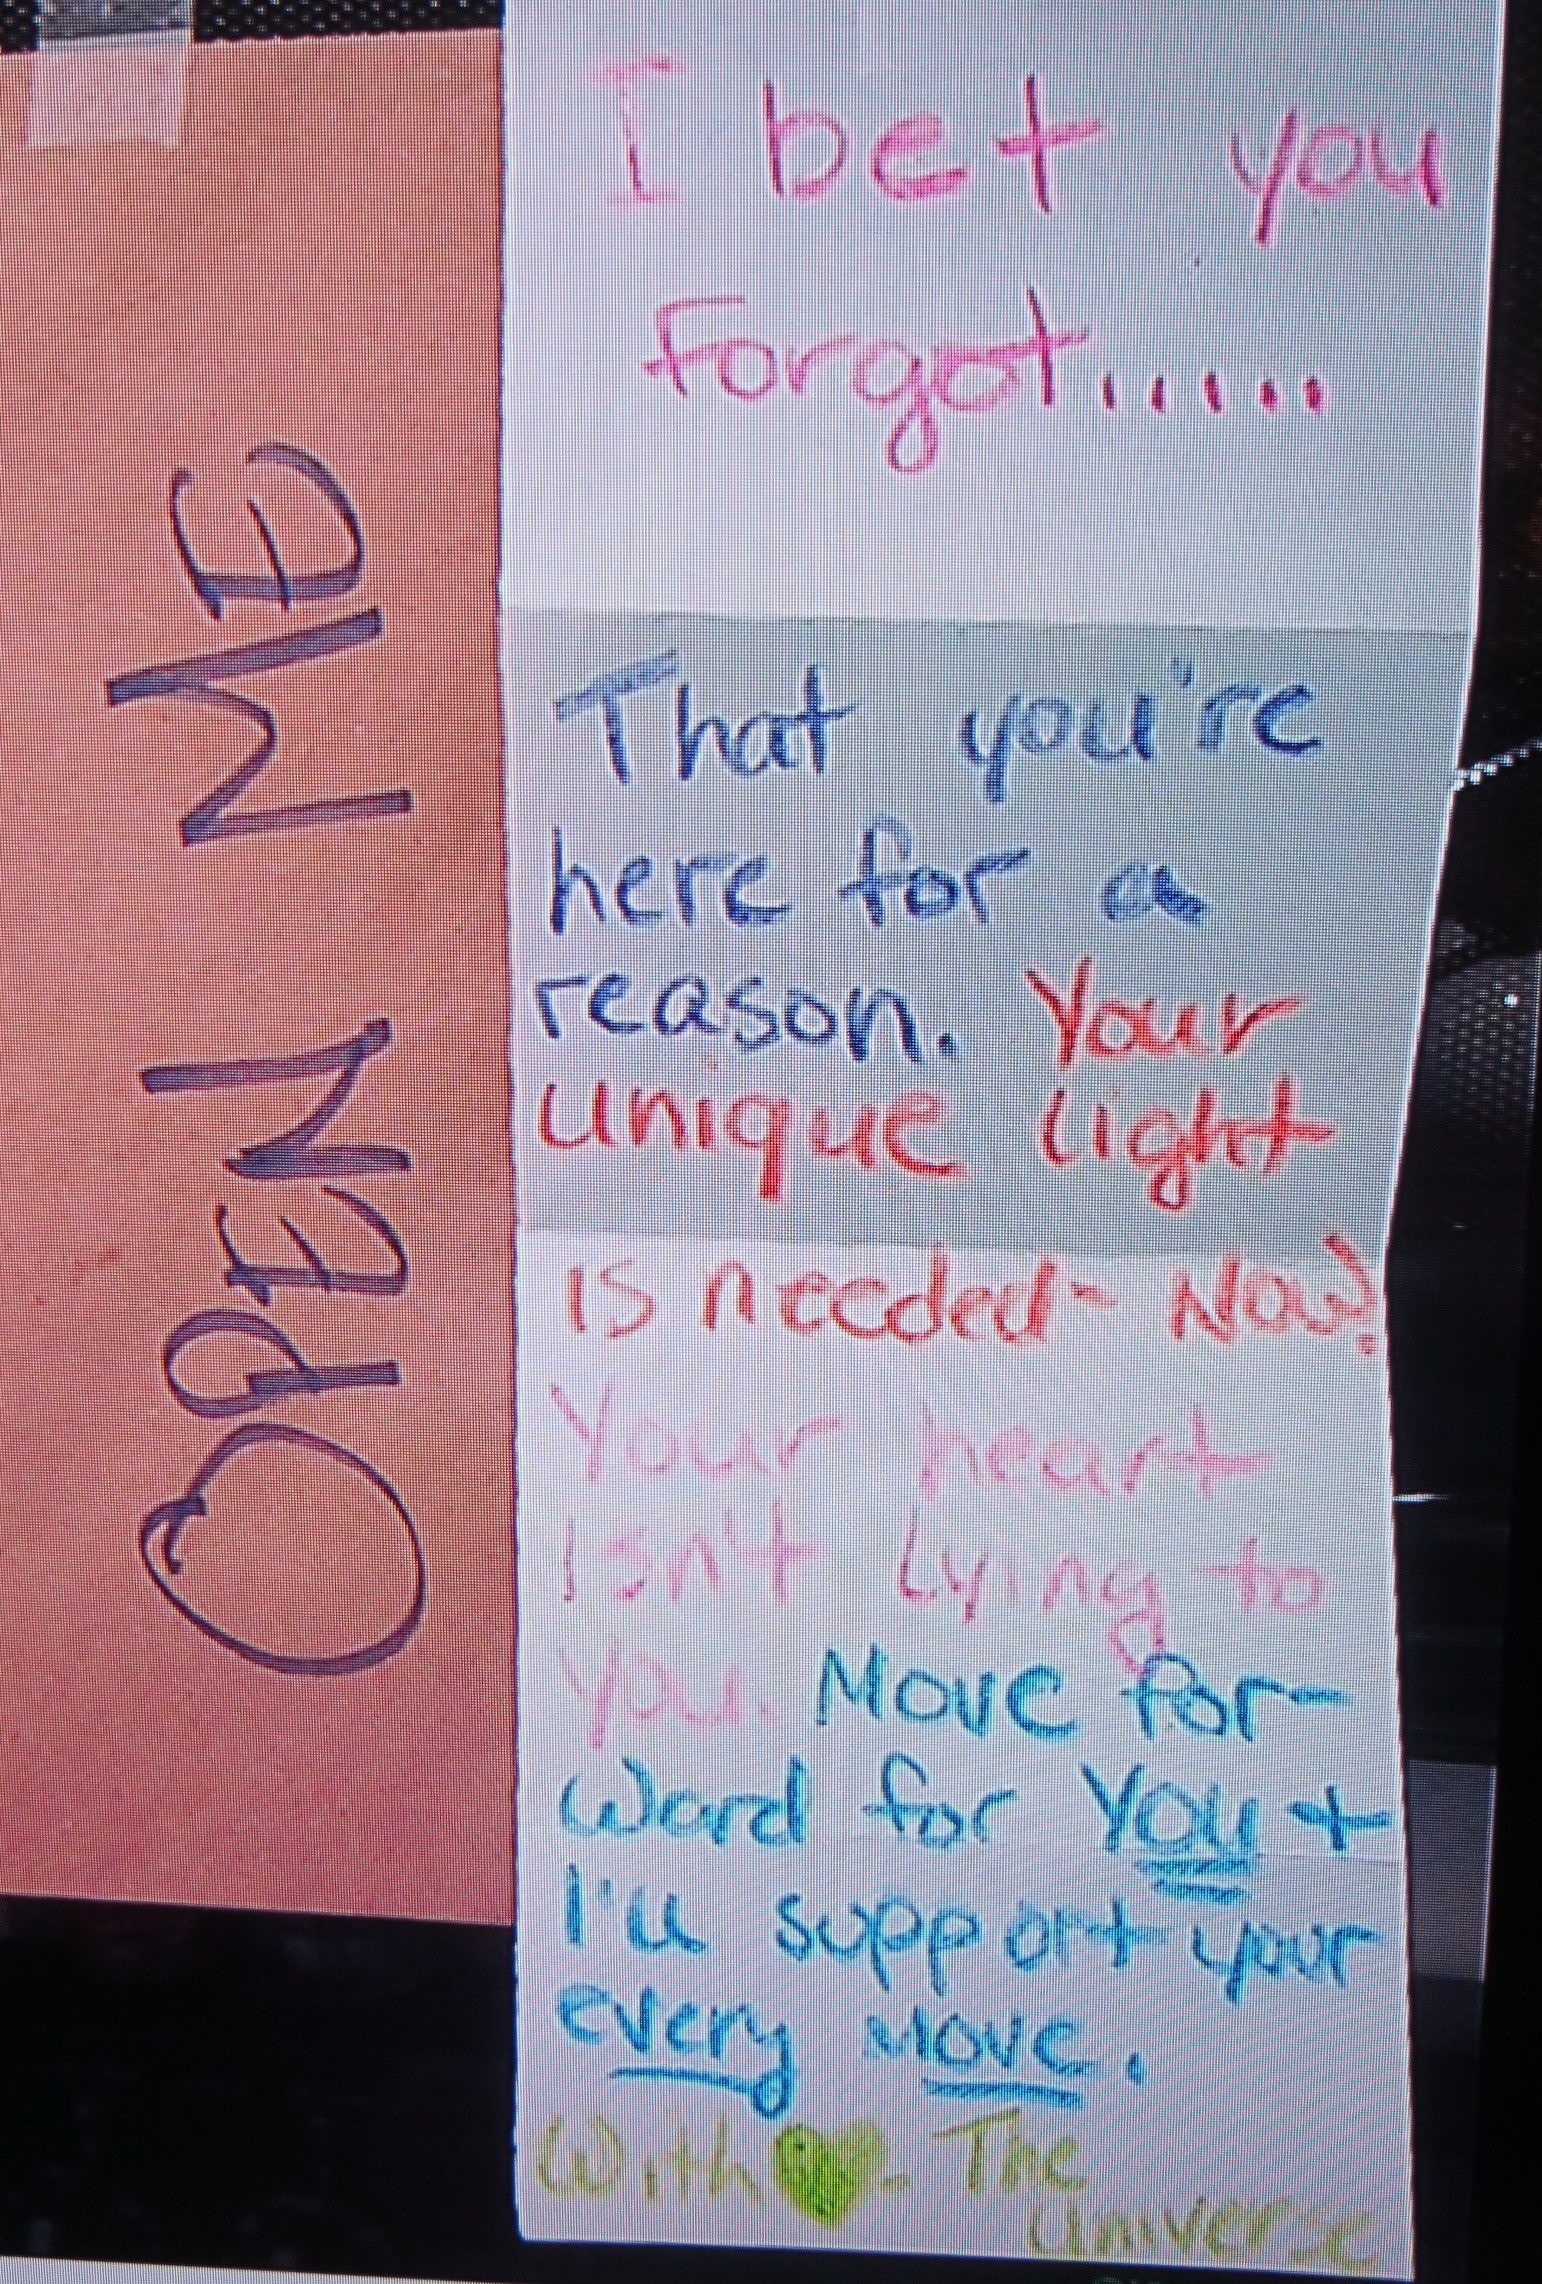 OPEN ME
I bet you
Forgot.....
That you're
here for a
reason. Your
unique light
is needed- Now!
Your heart
isn't lying to
you. Move for-
ward for YOU +
I'll support your
every move.
With 💚- The
Universe